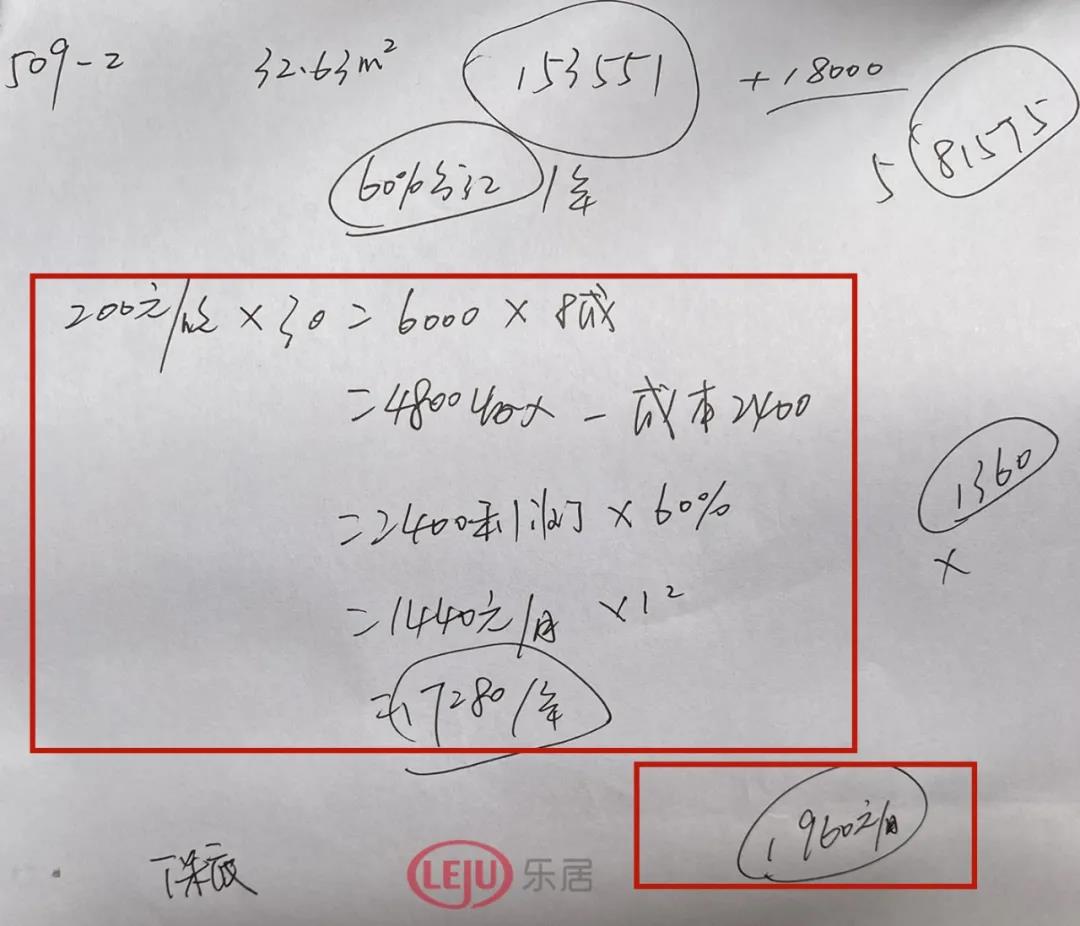 509-2 32.63m² 153551 +18000
5 81575
60%分红 /年
200元/晚 × 30 = 6000 × 8成
=4800 - 成本2400
=2400利润 × 60%
1360
×
=1440元/月 ×12
=17280/年
1960元/月
LEJU 乐居